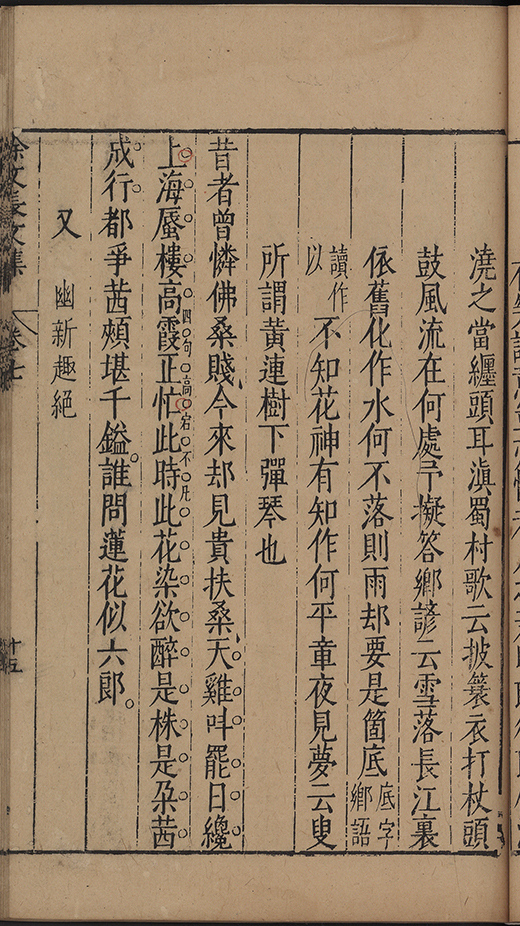 澆之當纏頭耳滇蜀村歌云披簑衣打杖頭
鼓風流在何處予擬答鄉諺云雪落長江裏
依舊化作水何不落則雨却要是箇底底字鄉語
讀作以不知花神有知作何平章夜見夢云叟
所謂黃連樹下彈琴也
昔者曾憐佛桑賤今來却見貴扶桑天雞呌罷日纔
上海蜃樓高霞正忙此時此花染欲醉是株是朶茜
成行都爭茜頰堪千鎰誰問蓮花似六郎
四句高宕不凡
又 幽新趣絕
徐文長文集 卷七 十五